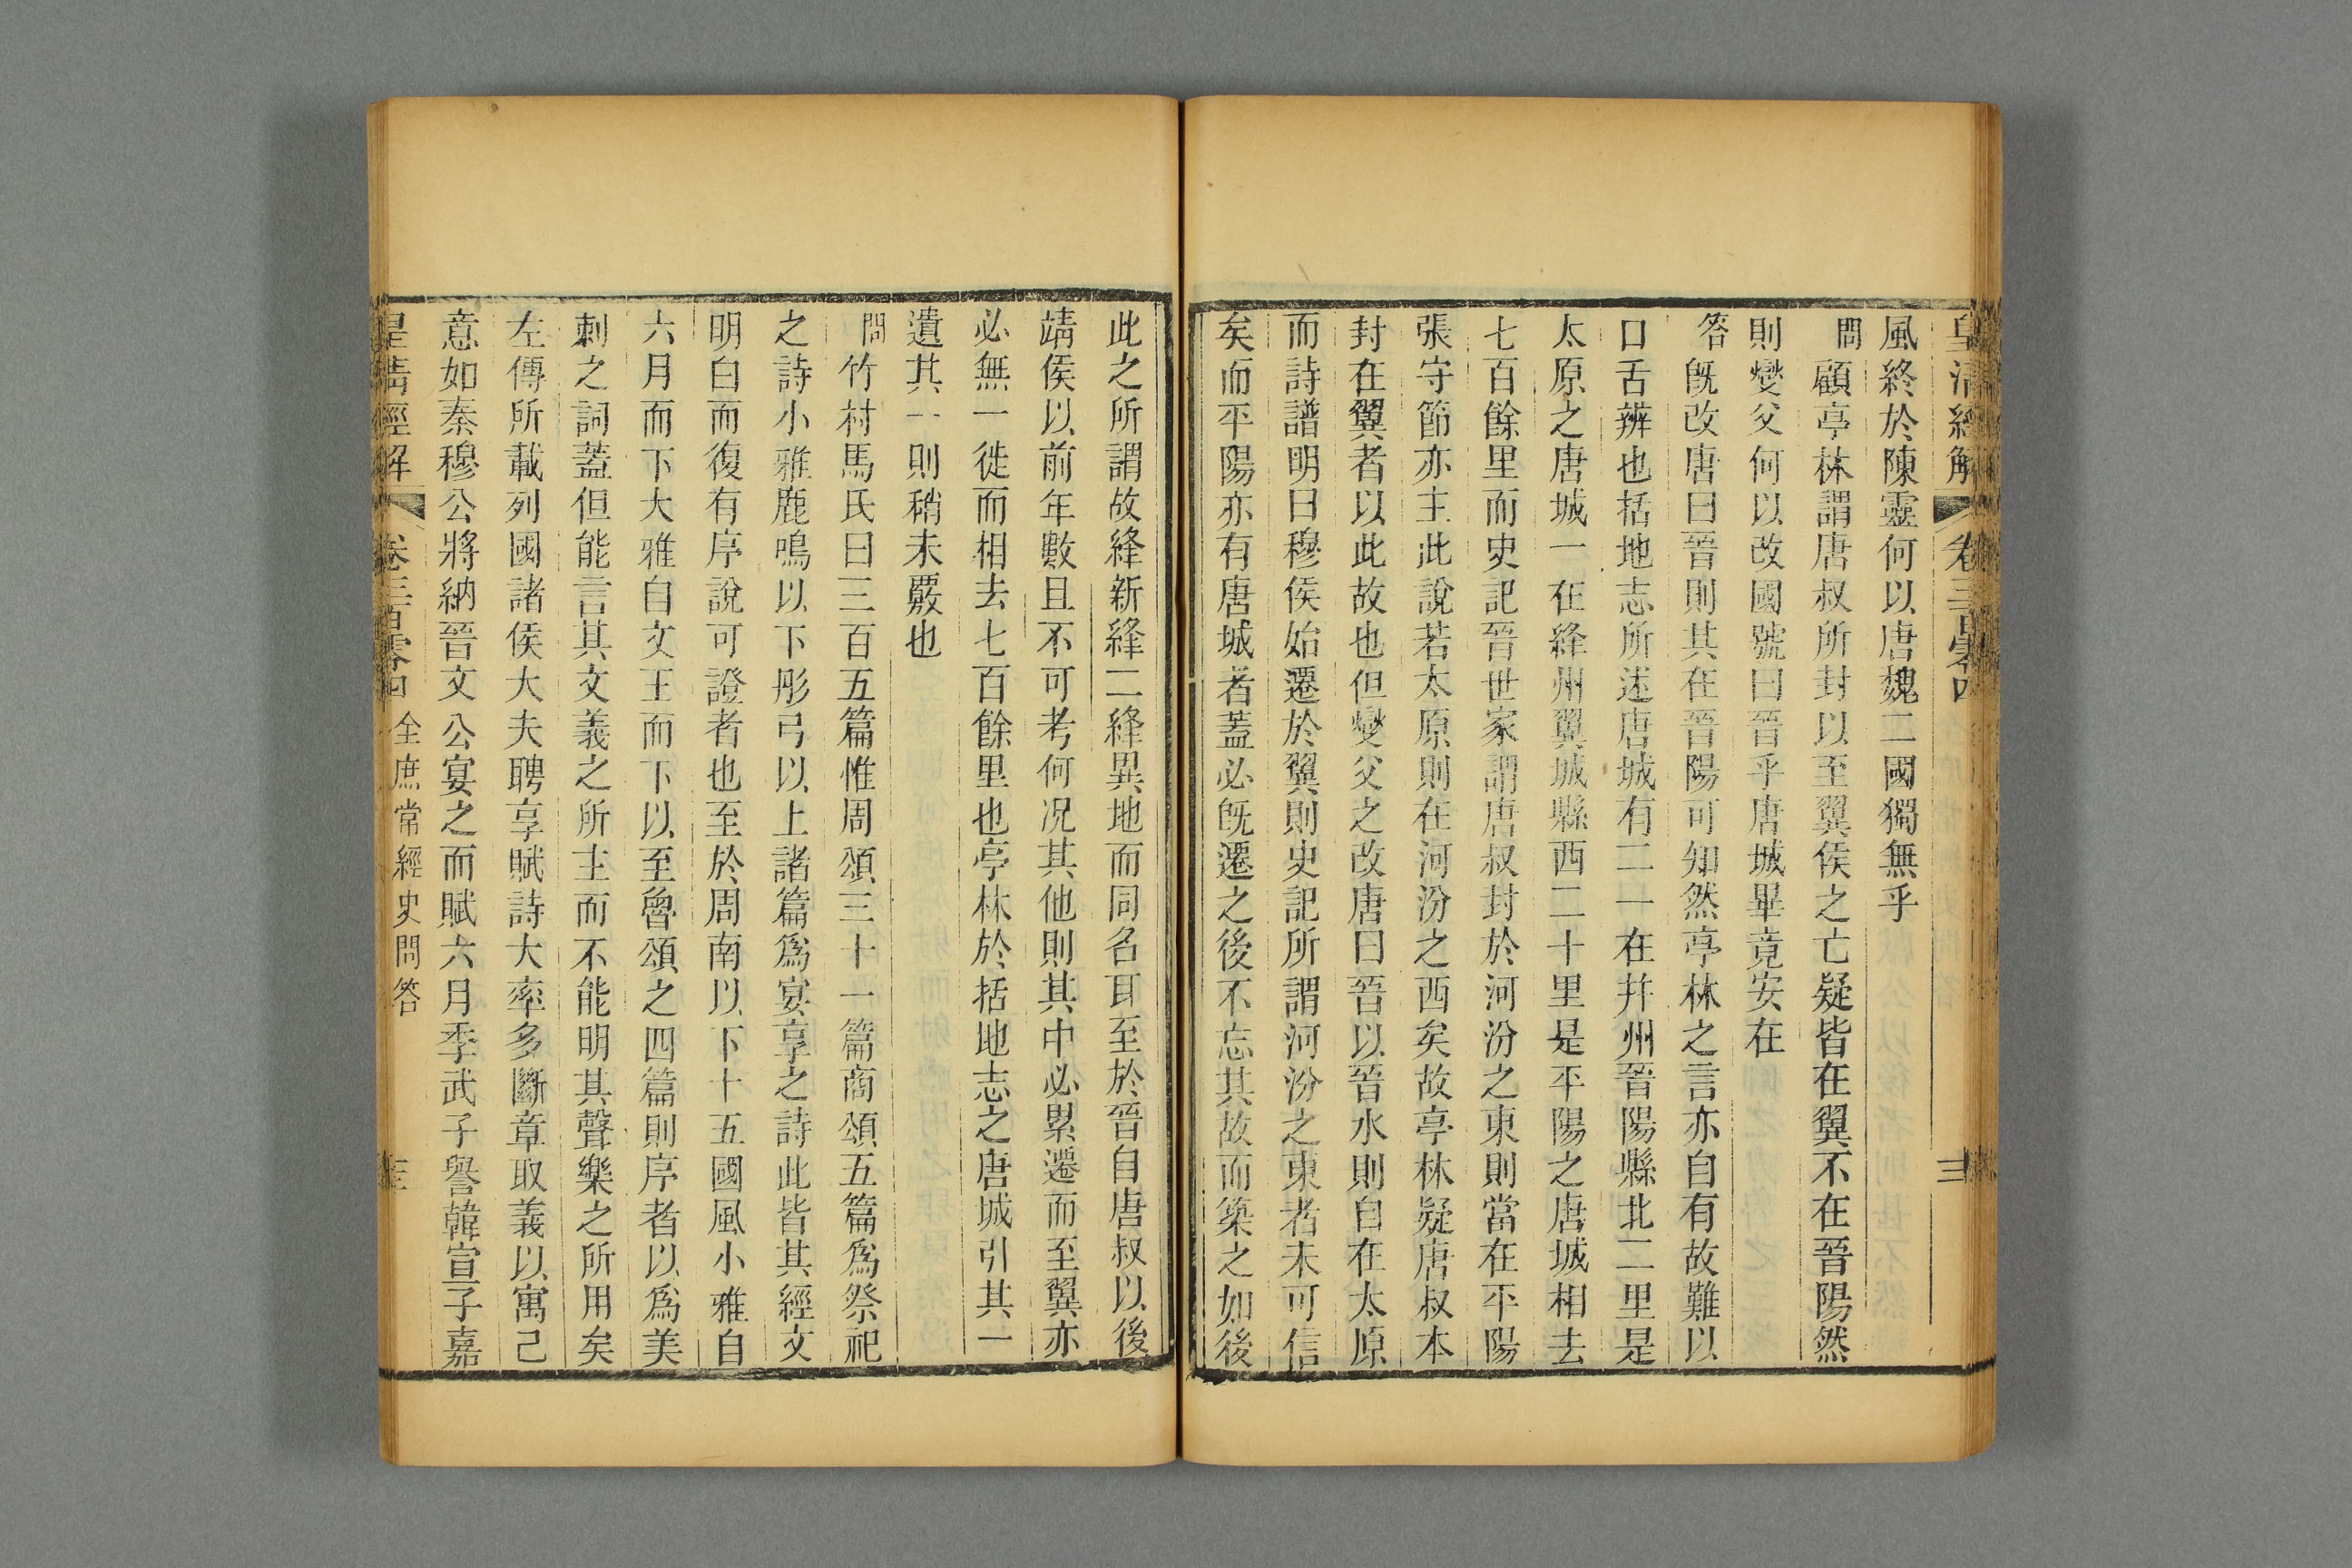 皇清經解 卷三百零四 三
風終於陳靈何以唐魏二國獨無乎
問顧亭林謂唐叔所封以至翼侯之亡疑皆在翼不在晉陽然
則燮父何以改國號曰晉乎唐城畢竟安在
答旣改唐曰晉則其在晉陽可知然亭林之言亦自有故難以
口舌辨也括地志所述唐城有二一在幷州晉陽縣北二里是
太原之唐城一在絳州翼城縣西二十里是平陽之唐城相去
七百餘里而史記晉世家謂唐叔封於河汾之東則當在平陽
張守節亦主此說若太原則在河汾之西矣故亭林疑唐叔本
封在翼者以此故也但燮父之改唐曰晉以晉水則自在太原
而詩譜明曰穆侯始遷於翼則史記所謂河汾之東者未可信
矣而平陽亦有唐城者蓋必旣遷之後不忘其故而築之如後
此之所謂故絳新絳二絳異地而同名耳至於晉自唐叔以後
靖侯以前年數且不可考何况其他則其中必累遷而至翼亦
必無一徙而相去七百餘里也亭林於括地志之唐城引其一
遺其一則稍未覈也
問竹村馬氏曰三百五篇惟周頌三十一篇商頌五篇爲祭祀
之詩小雅鹿鳴以下彤弓以上諸篇爲宴享之詩此皆其經文
明白而復有序說可證者也至於周南以下十五國風小雅自
六月而下大雅自文王而下以至魯頌之四篇則序者以爲美
刺之詞蓋但能言其文義之所主而不能明其聲樂之所用矣
左傳所載列國諸侯大夫聘享賦詩大率多斷章取義以寓己
意如秦穆公將納晉文公宴之而賦六月季武子譽韓宣子嘉
皇清經解 卷三百零四 全庶常經史問答 三